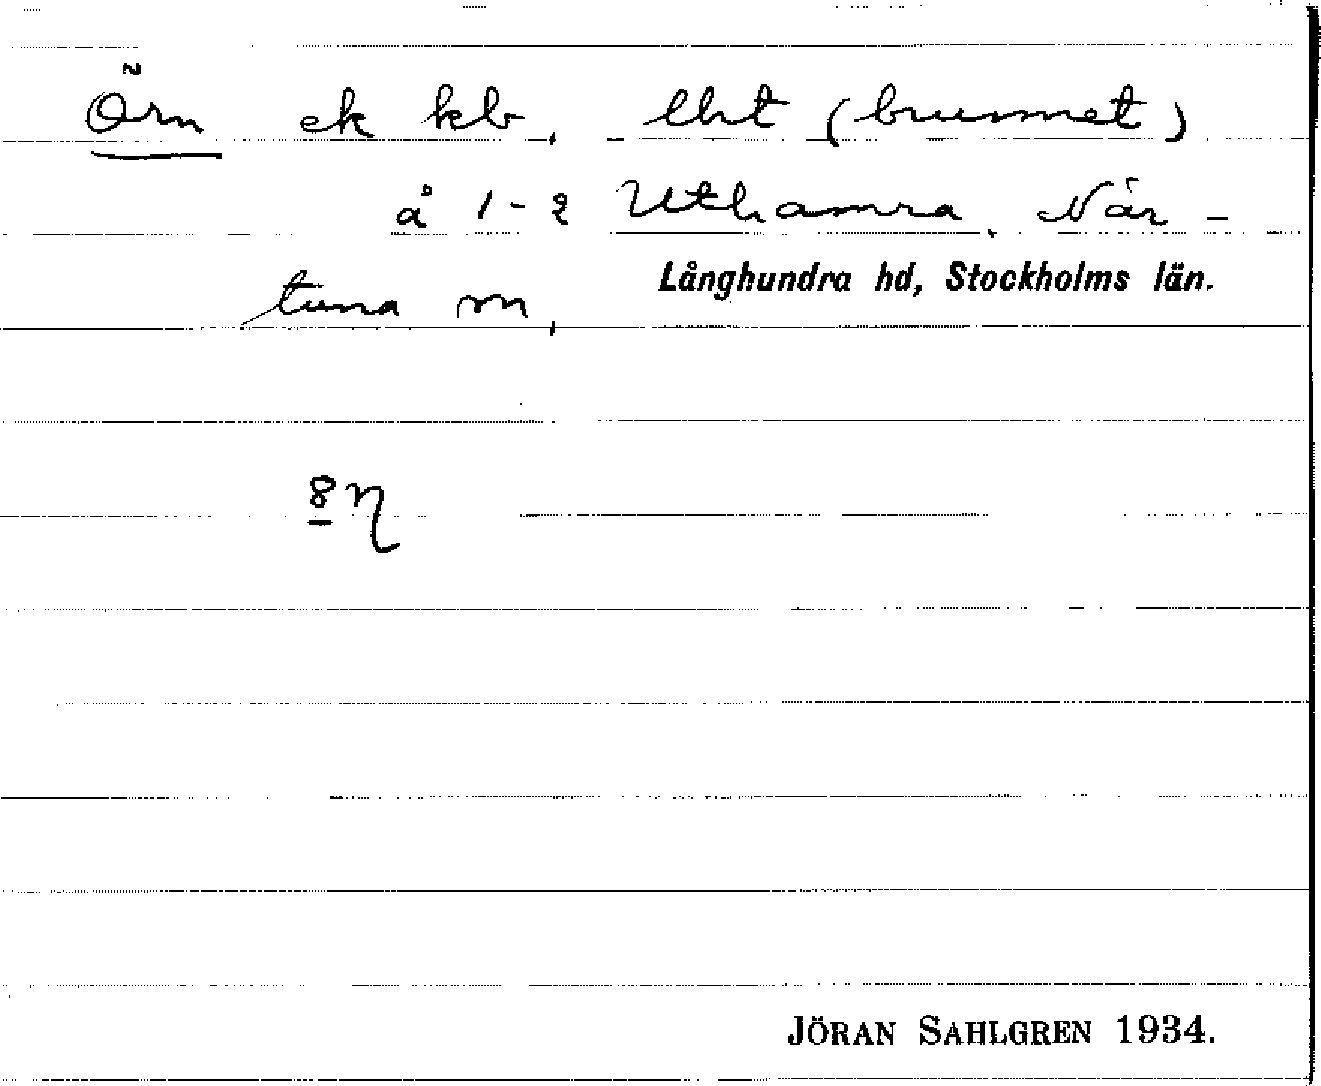 Örn ek kb, lht (brunnet)
å 1-2 Uthamra, När-
tuna sn,
Långhundra hd, Stockholms län.
JÖRAN SAHLGREN 1934.